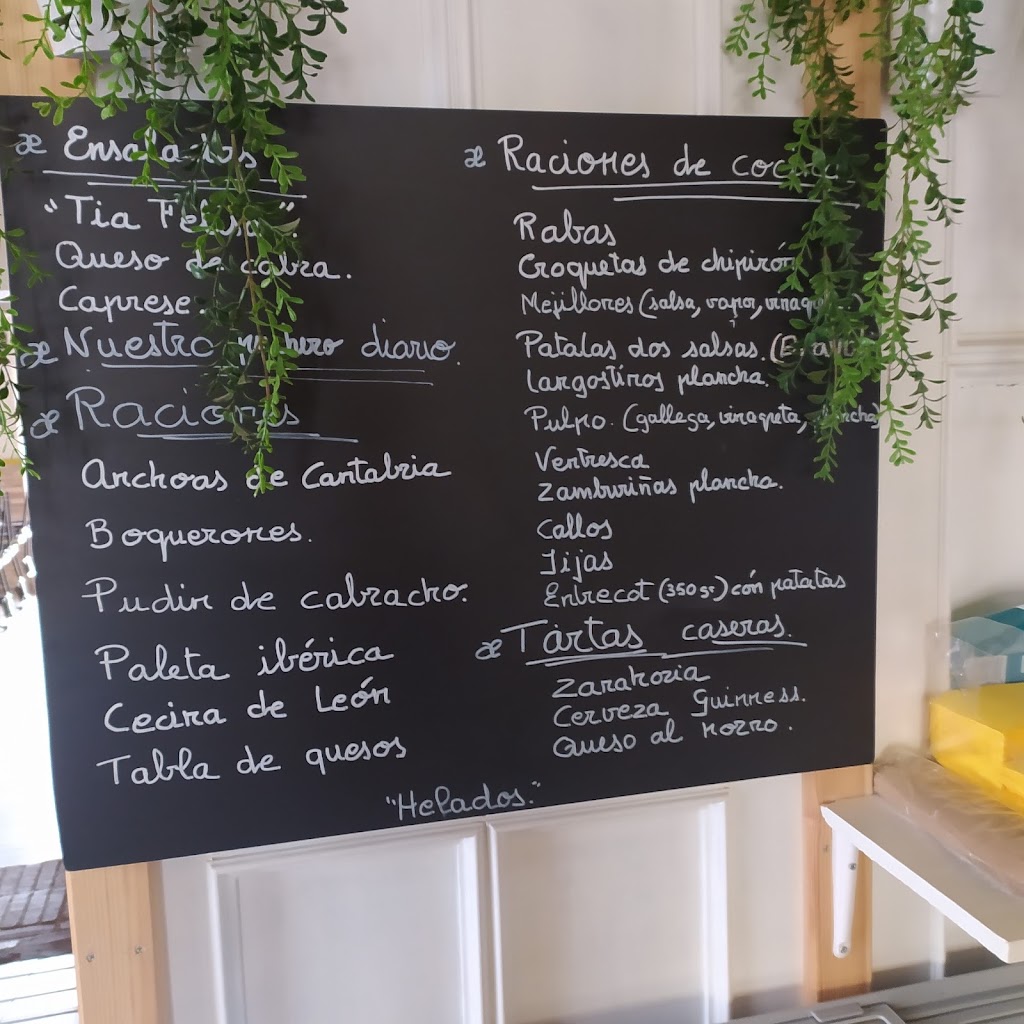 Ensaladas
"Tia Felisa".
Queso de cabra.
Caprese.
Nuestro puchero diario.
Raciones
Anchoas de Cantabria
Boquerones.
Pudin de cabracho.
Paleta ibérica
Cecina de León
Tabla de quesos
Raciones de cocina
Rabas
Croquetas de chipirón
Mejillones (salsa, vapor, vinagreta)
Patatas dos salsas.
Langostinos plancha.
Pulpo. (gallega, vinagreta, plancha)
Ventresca
Zamburiñas plancha.
Callos
Jijas
Entrecot (350 gr) cón patatas
Tartas caseras.
Zanahoria
Cerveza Guinness.
Queso al horno.
"Helados."